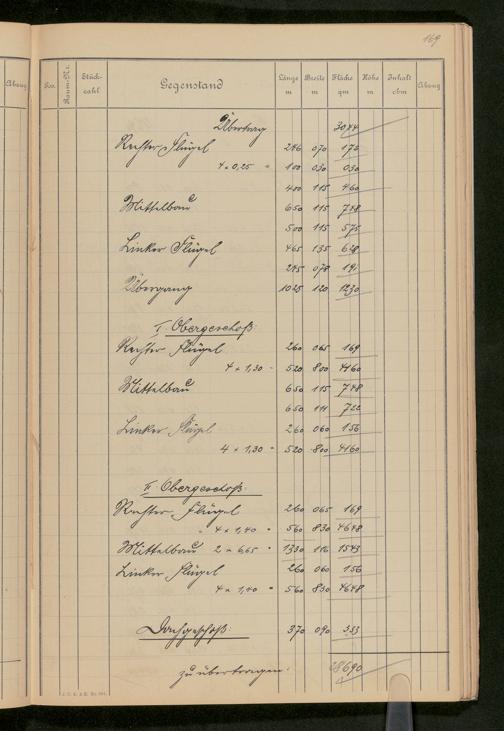 169
Abzug Pos. Raum-Nr. Stück-zahl Gegenstand Länge m Breite m Fläche qm Höhe m Inhalt cbm Abzug
Übertrag 3044
Rechter Flügel 246 070 175
4 × 0,25 = 100 030 030
400 115 460
Mittelbau 650 115 748
500 115 575
Linker Flügel 465 135 628
245 078 191
Übergang 1025 120 1230
I. Obergeschoß:
Rechter Flügel 260 065 169
4 × 1,30 = 520 800 4160
Mittelbau 650 115 748
650 111 722
Linker Flügel 260 060 156
4 × 1,30 = 520 800 4160
II. Obergeschoß:
Rechter Flügel 260 065 169
4 × 1,40 = 560 830 4648
Mittelbau 2 × 6,65 = 1330 116 1543
Linker Flügel 260 060 156
4 × 1,40 = 560 830 4648
Dachgeschoß: 370 090 333
zu übertragen: 28690